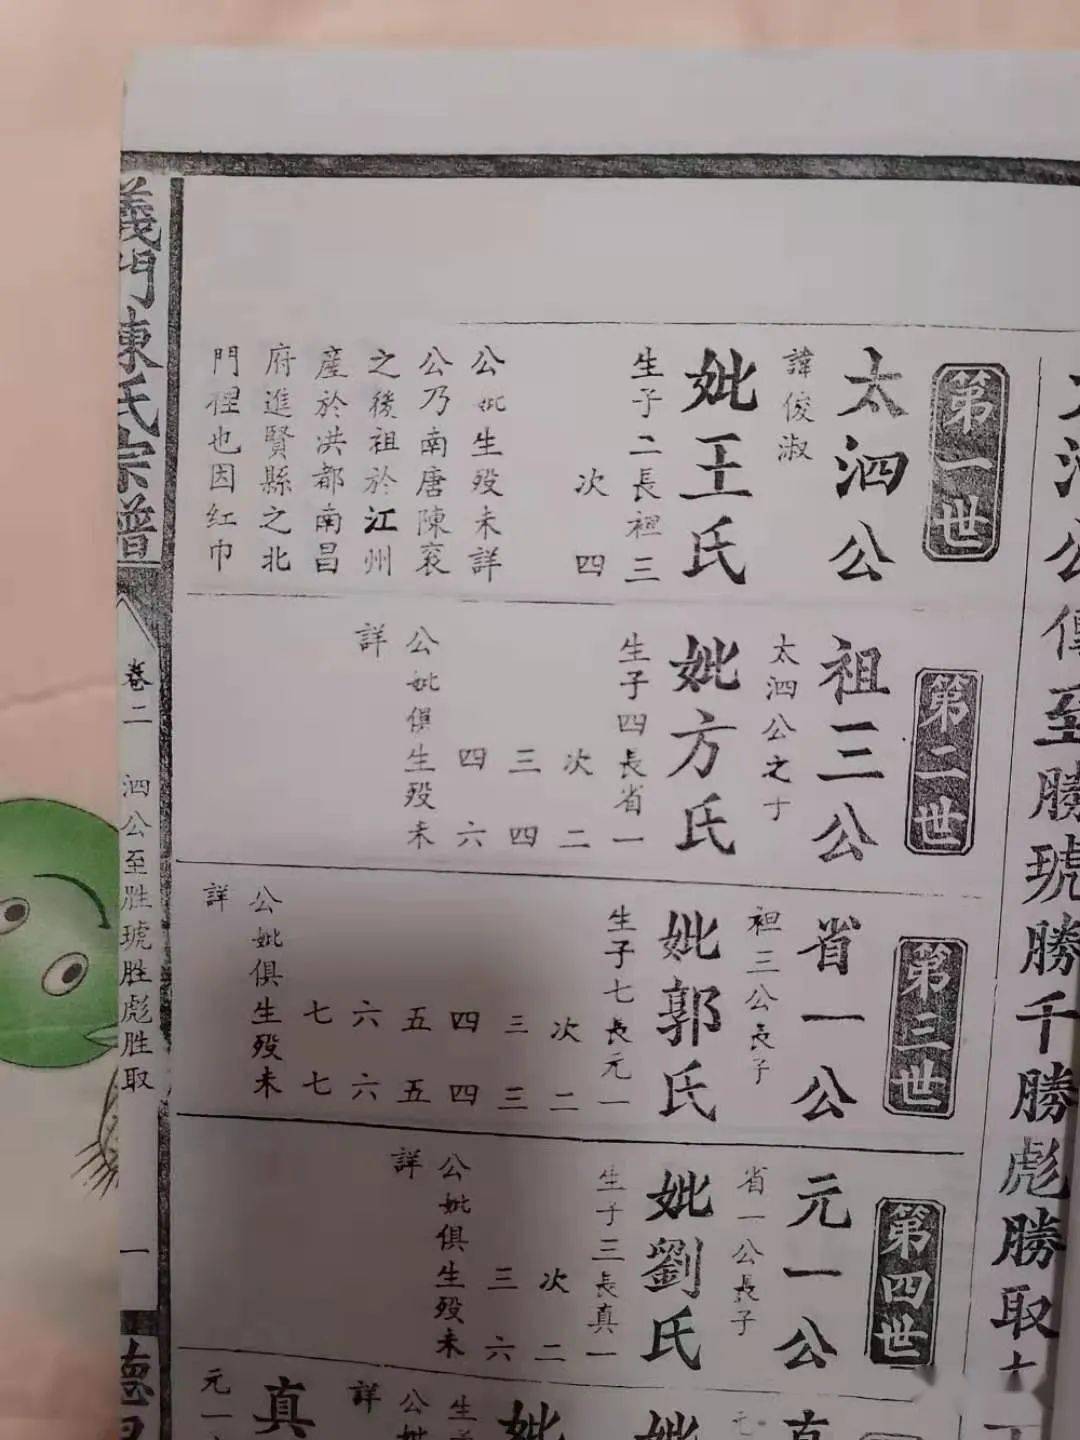 勝琥勝千勝彪勝取
第一世
太泗公
諱俊淑
妣王氏
生子二長祖三
次四
公妣生殁未詳
公乃南唐陳衮
之後祖於江州
產於洪都南昌
府進賢縣之北
門裡也因红巾
第二世
祖三公
太泗公之子
妣方氏
生子四長省一
次二
三四
四六
公妣俱生殁未
詳
第三世
省一公
祖三公長子
妣郭氏
生子七長元一
次二
三三
四四
五五
六六
七七
公妣俱生殁未
詳
第四世
元一公
省一公長子
妣劉氏
生子三長真一
次二
三六
公妣俱生殁未
詳
妣
生
公妣
詳
真
元一
義門陳氏宗譜
卷二
泗公至胜琥胜彪胜取
一